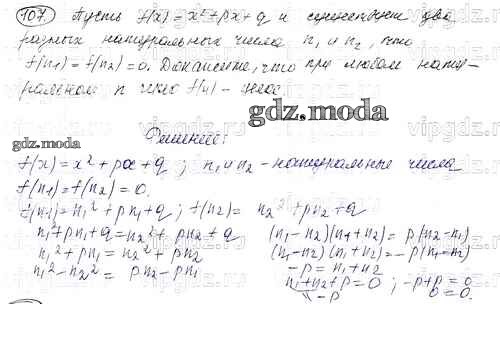 107 Пусть f(x) = x² + px + q и существуют два
разных натуральных числа n₁ и n₂, что
f(n₁) = f(n₂) = 0. Докажите, что при любом нату-
ральном n число f(n) -
gdz.moda
gdz.moda
Решение:
f(x) = x² + px + q ; n₁ и n₂ - натуральные числа
f(n₁) = f(n₂) = 0.
f(n₁) = n₁² + pn₁ + q ; f(n₂) = n₂² + pn₂ + q
n₁² + pn₁ + q = n₂² + pn₂ + q
(n₁ - n₂)(n₁ + n₂) = p(n₂ - n₁)
n₁² + pn₁ = n₂² + pn₂
(n₁ - n₂)(n₁ + n₂) = -p(n₁ - n₂)
n₁² - n₂² = pn₂ - pn₁
-p = n₁ + n₂
n₁ + n₂ + p = 0 ; -p + p = 0
-p
0 = 0.